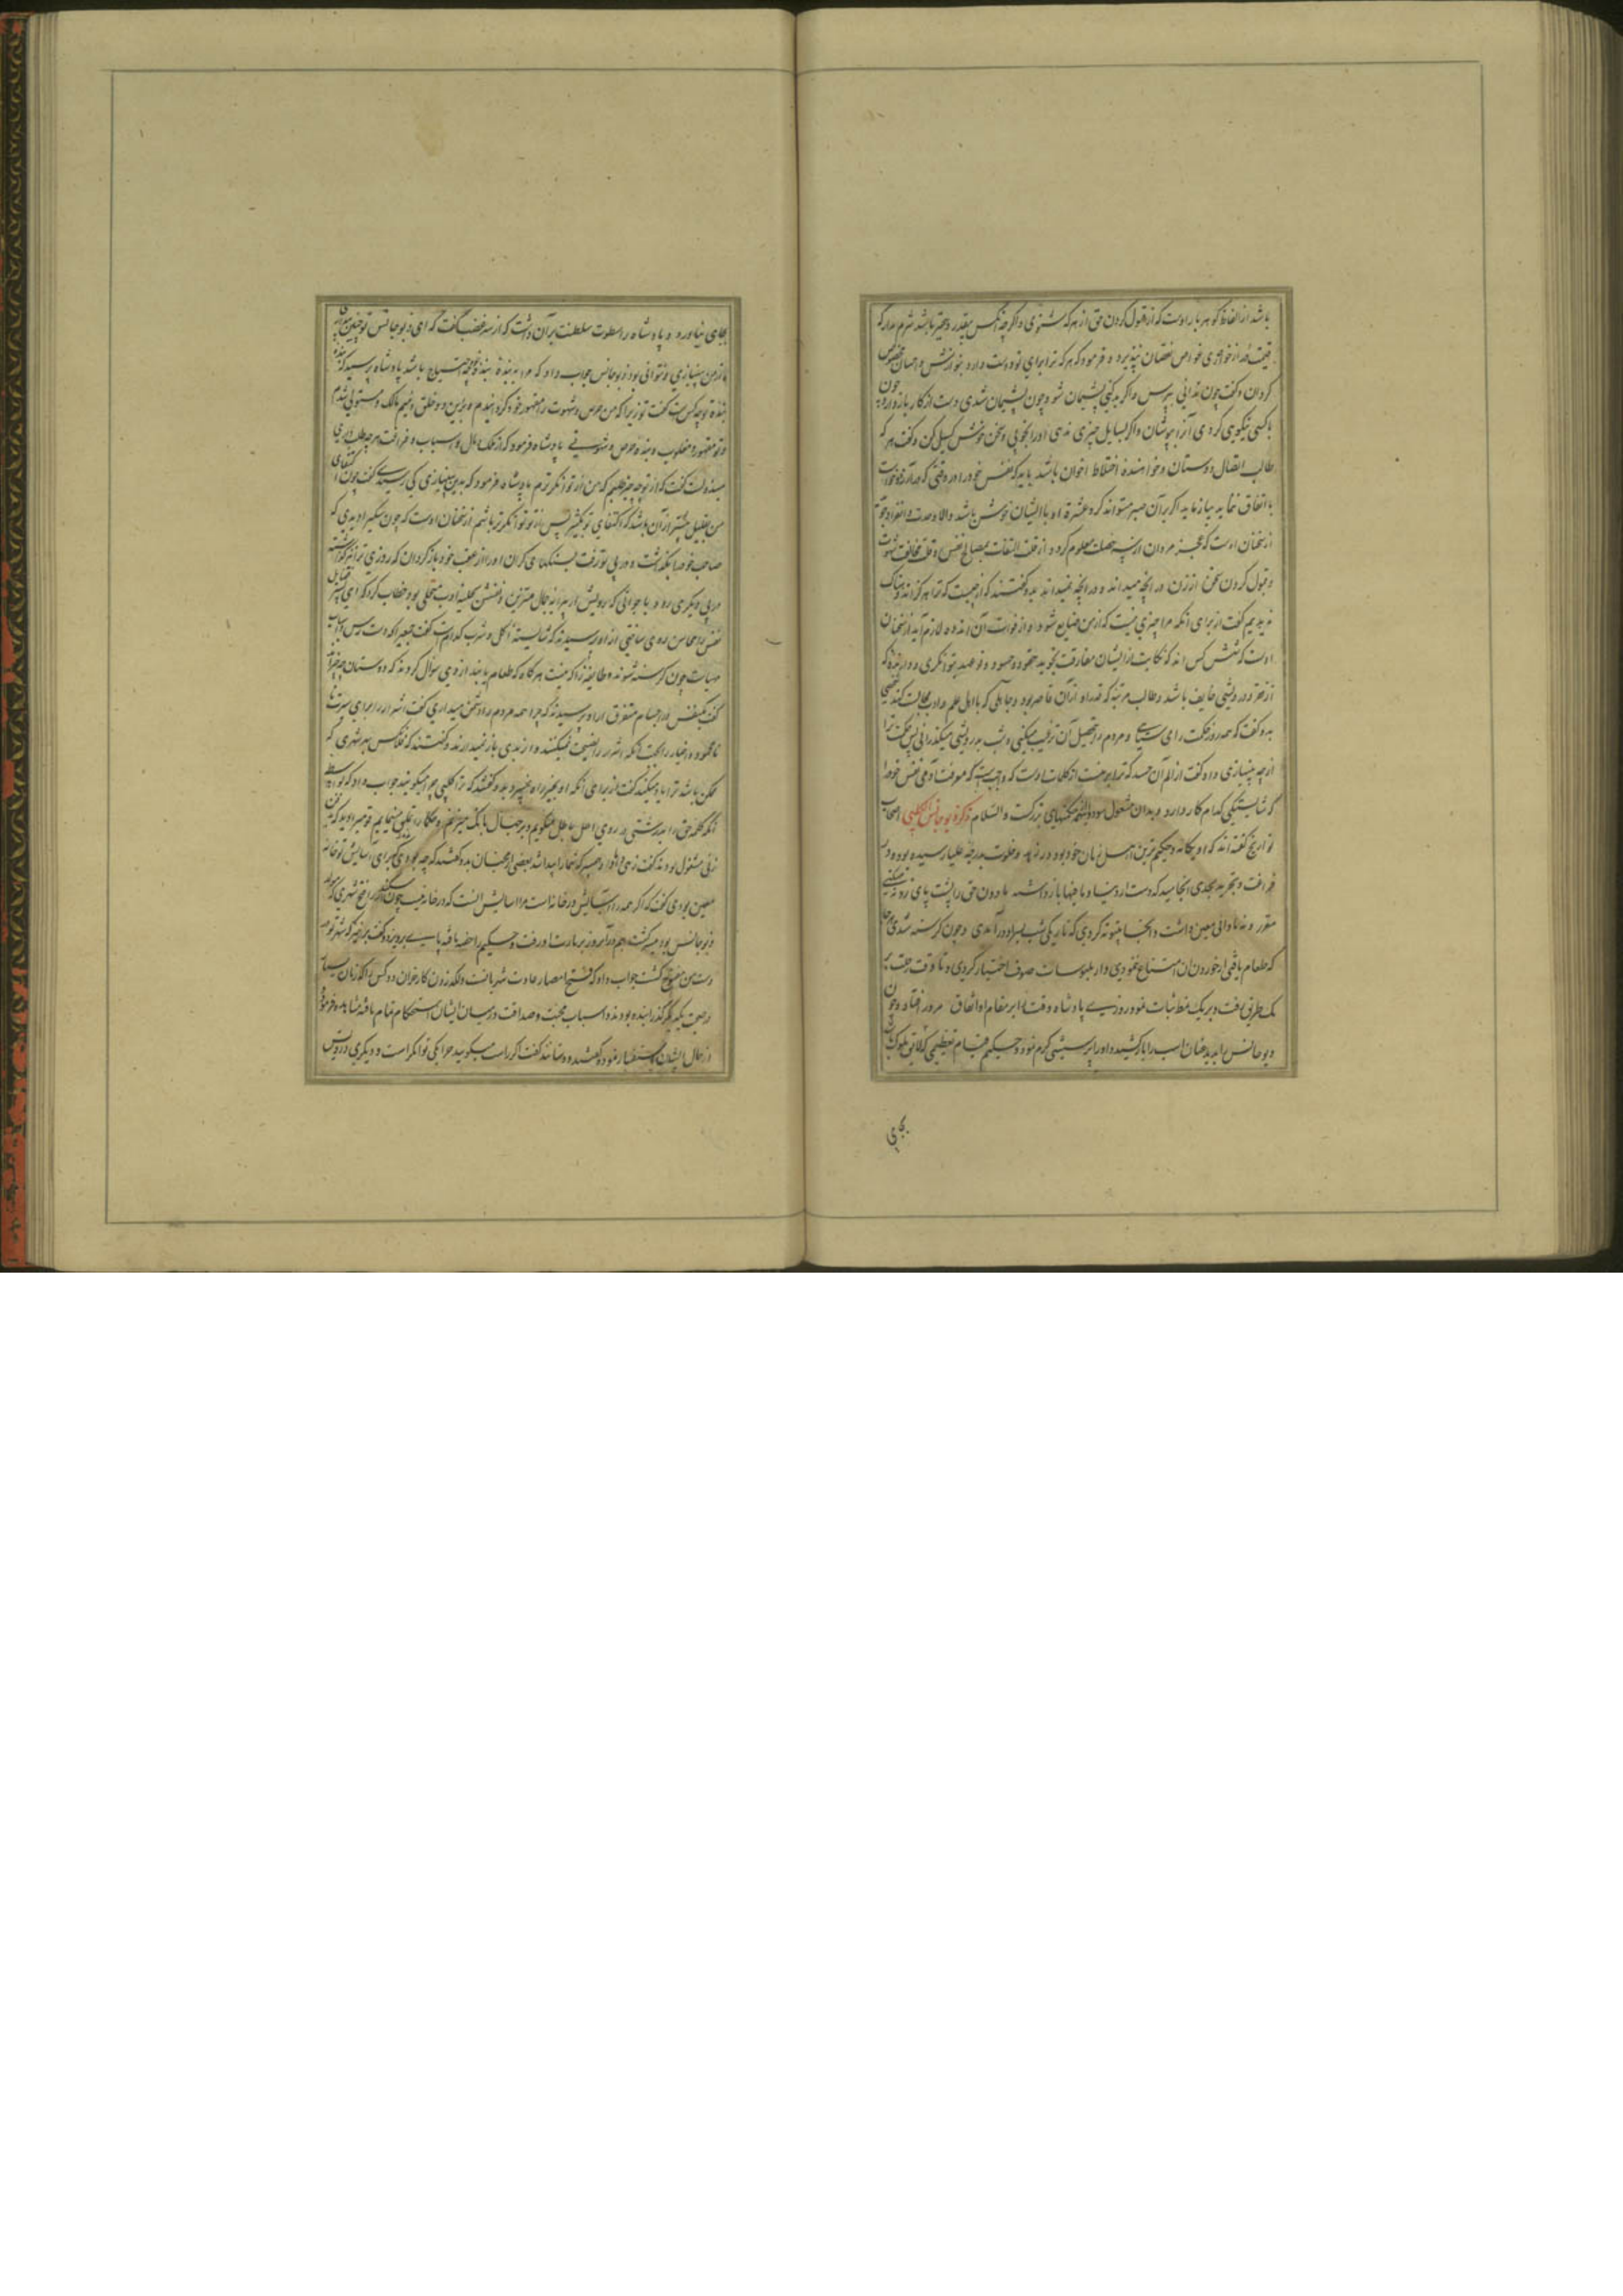 باشد از الفاظ گوهربار اوست که از قبول کردن حق از هر که شنوی و اگر چه آنکس بیقدر و حقیر باشد شرم مدار که
قیمت در از خواری غواص نقصان نپذیرد و فرمود که هر که ترا برای تو دوست دارد بنوازش و احسان مخصوص
گردان و گفت چون ندانی بپرس و اگر بد کنی پشیمان شو و چون پشیمان شدی دست از کار باز دار و چون
با کسی نیکویی کردی آنرا بپوشان و اگر بسایل چیزی ندهی او را بخوبی و سخن خوش گسیل کن و گفت هر که
طالب اتصال دوستان و خواهنده اختلاط اخوان باشد باید که نفس خود را در وقتی که
با اتفاق نماید بیازماید اگر بر آن صبر میتواند کرد عشرة او با ایشان خوش باشد والا وحدت و انفراد
از سخنان اوست که عجز مردان از سه خصلت معلوم گردد از قلت التفات بمصالح نفس و قلت مخالفت شهوت
و قبول کردن سخن از زن در آنچه میداند و در آنچه نمیداند بدو گفتند که از چیست که ترا هرگز اندوهناک
ندیدیم گفت از برای آنکه مرا چیزی نیست که از من ضایع شود و از فوات آن اندوه لازم آید از سخنان
اوست که شش کس اند که نکایت از ایشان مفارقت نجوید حقود و حسود و نو عهد بتوانگری و دارنده که
از فقر و درویشی خایف باشد و طالب مرتبه که قدر او از آن قاصر بود و جاهلی که با اهل علم و ادب مجالست کند شخصی
بدو گفت که همه روز حکمت را می‌ستایی و مردم را بتحصیل آن ترغیب میکنی و شب بدرویشی میگذرانی پس حکمت ترا
از چه بی‌نیازی داده گفت از الم آن حسد که ترا بر منست از کلمات اوست که واجبست که معرفت آدمی نفس خود را
که شایستگی کدام کار دارد و بدان مشغول شود بهترین حکمتهای بزرگست والسلام ذکر ذیوجانس کلبی اصحاب
تواریخ گفته‌اند که او یگانه و حکیم‌ترین اهل زمان خود بود و در زهد و خلوت بدرجه علیا رسیده بود و در
قدرافت و تجرید بحدی انجامید که دست از دنیا و مافیها باز داشته مادون حق را پشت پای زد نه مسکنی
مقرر و نه ماوائی معین داشت و آنجا بیتوته کردی که تاریکی شب بسر او در آمدی و چون گرسنه شدی هر جا
که طعام یافتی از خوردن آن امتناع ننمودی و از ملبوسات صوف اختیار کردی و تا وقت رحلت بر
یک طریق رفت و بر یک نمط ثبات نمود روزی پادشاه وقت را بر مقام او اتفاق مرور افتاد و چون
دیوجانس را بدید عنان اسب را باز کشیده او را پرسشی گرم نمود و حکیم قیام تعظیمی که لایق ملوک باشد
بجای
بجای نیاورد و پادشاه را سطوت سلطنت بر آن داشت که از سر غضب گفت که ای ذیوجانس تو چنین میدانی
که از من بی‌نیازی و توانی بود ذیوجانس جواب داد که مرا به بندهٔ بندهٔ خود چه احتیاج باشد پادشاه پرسید که
بنده تو چه کس است گفت تو زیرا که من حرص و شهوت را مقهور خود گردانیدم و برین دو خلق ذمیم مالک و مستولی شدم
و تو مقهور و مغلوب و بنده حرص و شهوتی پادشاه فرمود که از ملک و مال و اسباب و فراغت هر چه طلب داری
مبذولست گفت که از تو چه چیز طلبم که من از تو توانگرترم پادشاه فرمود که بدین بی‌نیازی کی رسیدی گفت چون اکتفای
من بقلیل بیشتر از آن باشد که اکتفای تو بکثیر پس از تو توانگرتر باشم از سخنان اوست که چون سگی را دیدی که
صاحب خود را بگذاشت و در پی تو رفت بسنگش کران او را از عقب خود باز گردان که روزی ترا نیز گذاشته
در پی دیگری رود و با جوانی که رویش از پیرایه جمال مزین و نفسش بحلیه ادب متحلی بود خطاب کرد که ای پسر فضایل
نفس را محاسن روی ساختی از او پرسیدند که شایسته اکل و شرب کدام است گفت جمعی را که دست رس و اسباب
مهیاست چون گرسنه شوند و طایفه را که نیست هر گاه که طعام یابند از وی سؤال کردند که دوستان چه چیزند
گفت یک نفس در اجسام متفرق از او پرسیدند که چرا همه مردم را دشمن میداری گفت اشرار را برای سیرت
نامحمود و اخیار را بجهت آنکه اشرار را نصیحت نمیکنند و از بدی باز نمیدارند و گفتند که فلان کس بهر شهری که
ممکن باشد ترا یاد میکند گفت از برای آنکه او بغیر راه خیر و بدو گفتند که ترا کلبی چرا میگویند جواب داد که بواسطه
آنکه کلمه حق را بدرشتی در روی اهل باطل میگویم و بر جهال بانگ میزنم و حکما را تملق مینمایم قومی را دید که بدفن
زنی مشغول بودند گفت زهی داماد و صهر که شما را پیدا شد بعضی از محبان بدو گفتند که چه بودی که برای آسایش تو خانه
معین بودی گفت که اگر همه را آسایش در خانه است مرا آسایش آنست که در خانه نیست چون سکندر را فتح شهری که مولد
ذیوجانس بود میسر گشت هم در آنروز بزیارت او رفت و حکیم را خفته یافته پایی بر وی زد و گفت برخیز که شهر تو بر
دست من مفتوح گشت جواب داد که فتح امصار عادت شهریاران است و لگد زدن کار خران دو کس را که زمان بسیار
در صحبت یکدیگر گذرانیده بودند و اسباب محبت و صداقت در میان ایشان استحکام تمام یافته مشاهده فرموده
از حال ایشان استفسار نمود گفتند دوستانند گفت اگر راست میگویید چرا یکی توانگر است و دیگری درویش